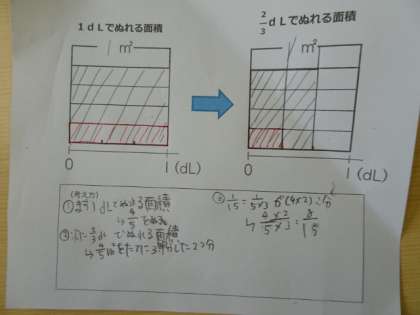 1dLでぬれる面積
2/3 dLでぬれる面積
1 m²
1 m²
0 1(dL)
0 1(dL)
(考え方)
①まず1dLでぬれる面積
↳ 4/5 をぬる
②次に 2/3 dLでぬれる面積
↳ 4/5 m²をたてに3等分した2つ分
③ 1/15 = 1/5×3 が(4×2)こ分
↳ 4×2/5×3 = 8/15